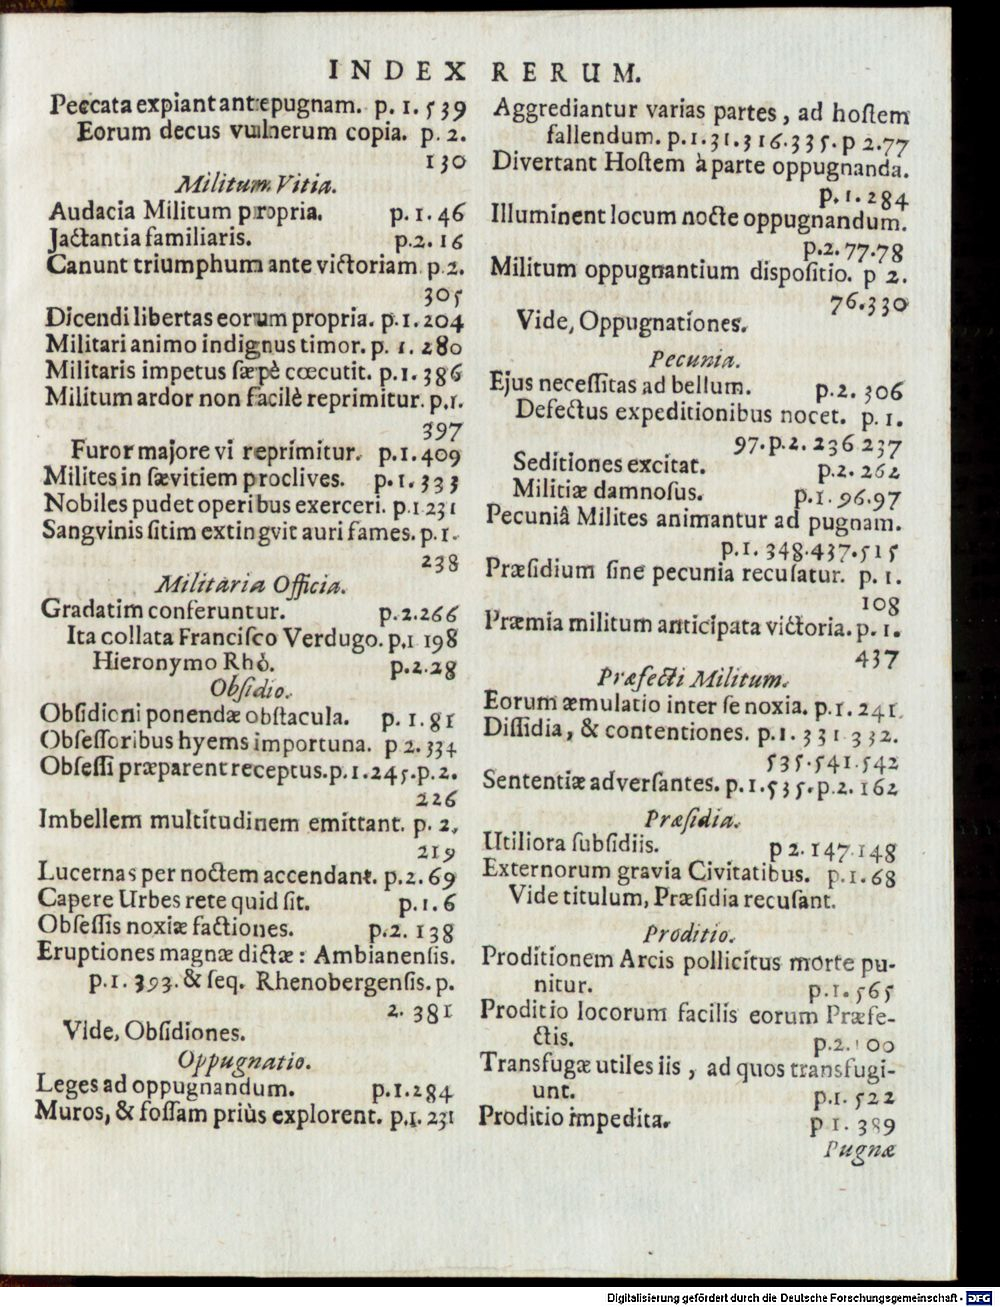 INDEX RERUM.
Peccata expiant ante pugnam. p. 1. 539
Eorum decus vulnerum copia. p. 2.
130
Militum Vitia.
Audacia Militum propria. p. 1. 46
Jactantia familiaris. p. 2. 16
Canunt triumphum ante victoriam p. 2.
305
Dicendi libertas eorum propria. p. 1. 204
Militari animo indignus timor. p. 1. 280
Militaris impetus sæpè cœcutit. p. 1. 386
Militum ardor non facilè reprimitur. p. 1.
397
Furor majore vi reprimitur. p. 1. 409
Milites in sævitiem proclives. p. 1. 333
Nobiles pudet operibus exerceri. p. 1 231
Sangvinis sitim extingvit auri fames. p. 1.
238
Militaria Officia.
Gradatim conferuntur. p. 2. 266
Ita collata Francisco Verdugo. p. 1 198
Hieronymo Rhò. p. 2. 28
Obsidio.
Obsidioni ponendæ obstacula. p. 1. 81
Obsessoribus hyems importuna. p 2. 334
Obsessi præparent receptus. p. 1. 245. p. 2.
226
Imbellem multitudinem emittant. p. 2.
219
Lucernas per noctem accendant. p. 2. 69
Capere Urbes rete quid sit. p. 1. 6
Obsessis noxiæ factiones. p. 2. 138
Eruptiones magnæ dictæ: Ambianensis.
p. 1. 393. & seq. Rhenobergensis. p.
2. 381
Vide, Obsidiones.
Oppugnatio.
Leges ad oppugnandum. p. 1. 284
Muros, & fossam priùs explorent. p. 1. 231
Aggrediantur varias partes, ad hostem
fallendum. p. 1. 31. 316. 335. p 2. 77
Divertant Hostem à parte oppugnanda.
p. 1. 284
Illuminent locum nocte oppugnandum.
p. 2. 77. 78
Militum oppugnantium dispositio. p 2.
76. 330
Vide, Oppugnationes.
Pecunia.
Ejus necessitas ad bellum. p. 2. 306
Defectus expeditionibus nocet. p. 1.
97. p. 2. 236 237
Seditiones excitat. p. 2. 262
Militiæ damnosus. p. 1. 96. 97
Pecuniâ Milites animantur ad pugnam.
p. 1. 348. 437. 515
Præsidium sine pecunia recusatur. p. 1.
108
Præmia militum anticipata victoria. p. 1.
437
Præfecti Militum.
Eorum æmulatio inter se noxia. p. 1. 241.
Dissidia, & contentiones. p. 1. 331 332.
535. 541. 542
Sententiæ adversantes. p. 1. 535. p. 2. 162
Præsidia.
Utiliora subsidiis. p 2. 147. 148
Externorum gravia Civitatibus. p. 1. 68
Vide titulum, Præsidia recusant.
Proditio.
Proditionem Arcis pollicitus morte pu-
nitur. p. 1. 565
Proditio locorum facilis eorum Præfe-
ctis. p. 2. 00
Transfugæ utiles iis, ad quos transfugi-
unt. p. 1. 522
Proditio impedita. p 1. 389
Pugnæ
Digitalisierung gefördert durch die Deutsche Forschungsgemeinschaft - DFG